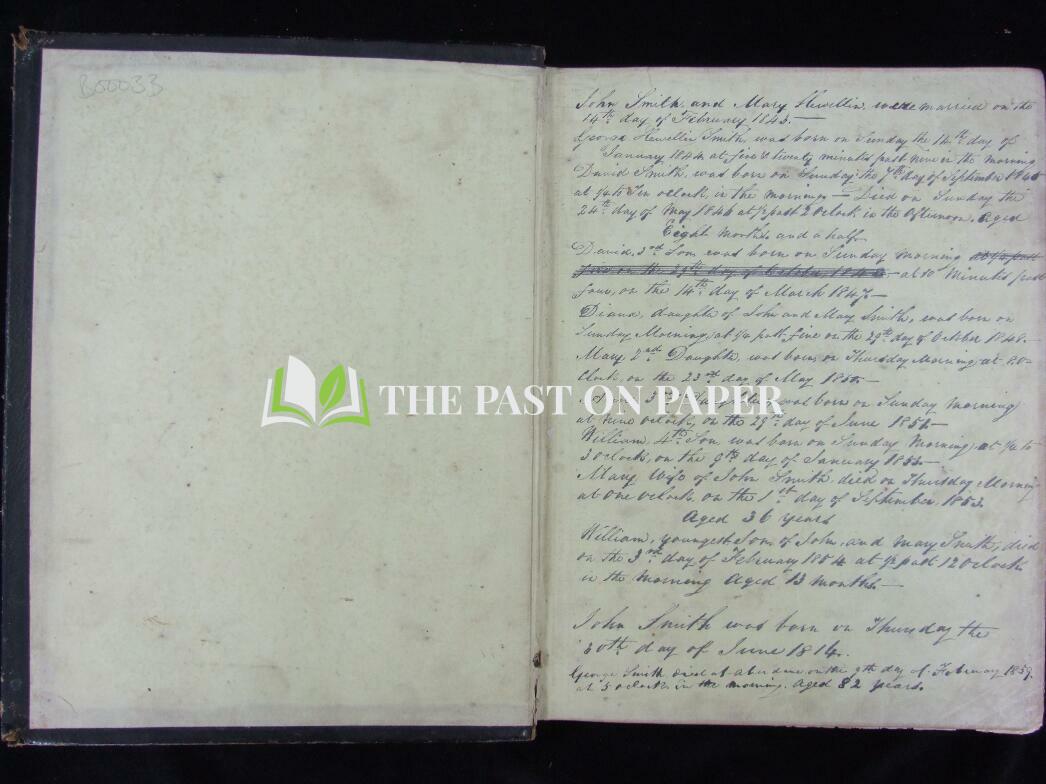 B00033
John Smith and Mary Hewellin were married on the
14th day of February 1843.—
George Hewellin Smith, was born on Sunday the 14th day of
January 1844 at five & twenty minutes past nine in the morning
David Smith, was born on Sunday the 7th day of September 1845
at ¼ to Ten oClock, in the morning — Died on Sunday the
24th day of May 1846 at ½ past 2 oClock in the Afternoon. Aged
Eight months and a half.
David, 3rd Son was born on Sunday morning at ¼ past
five on the 29th day of October, 1848. — at 10 Minutes past
four, on the 14th day of March 1847—
Diana, daughter of John and Mary Smith, was born on
Sunday Morning, at ¼ past five on the 29th day of October 1848.—
Mary 2nd Daughter, was born, on Thursday Morning, at 8 O-
Clock, on the 23rd day of May 1850.—
THE PAST ON PAPER
3rd Daughter, was born on Sunday morning
at Nine oClock, on the 29th day of June 1851—
William, 4th Son was born on Sunday Morning, at ¼ to
3 oClock, on the 9th day of January 1853.—
Mary Wife of John Smith died on Thursday Morning
at One oClock, on the 1st day of September 1853.
Aged 36 years
William, youngest Son of John, and Mary Smith, died
on the 3rd day of February 1854 at ½ past 12 oClock
in the Morning Aged 13 months.—
John Smith was born on Thursday the
30th day of June 1814.
George Smith died at on the 9th day of February 1859.
at 5 oClock in the morning. Aged 82 years.